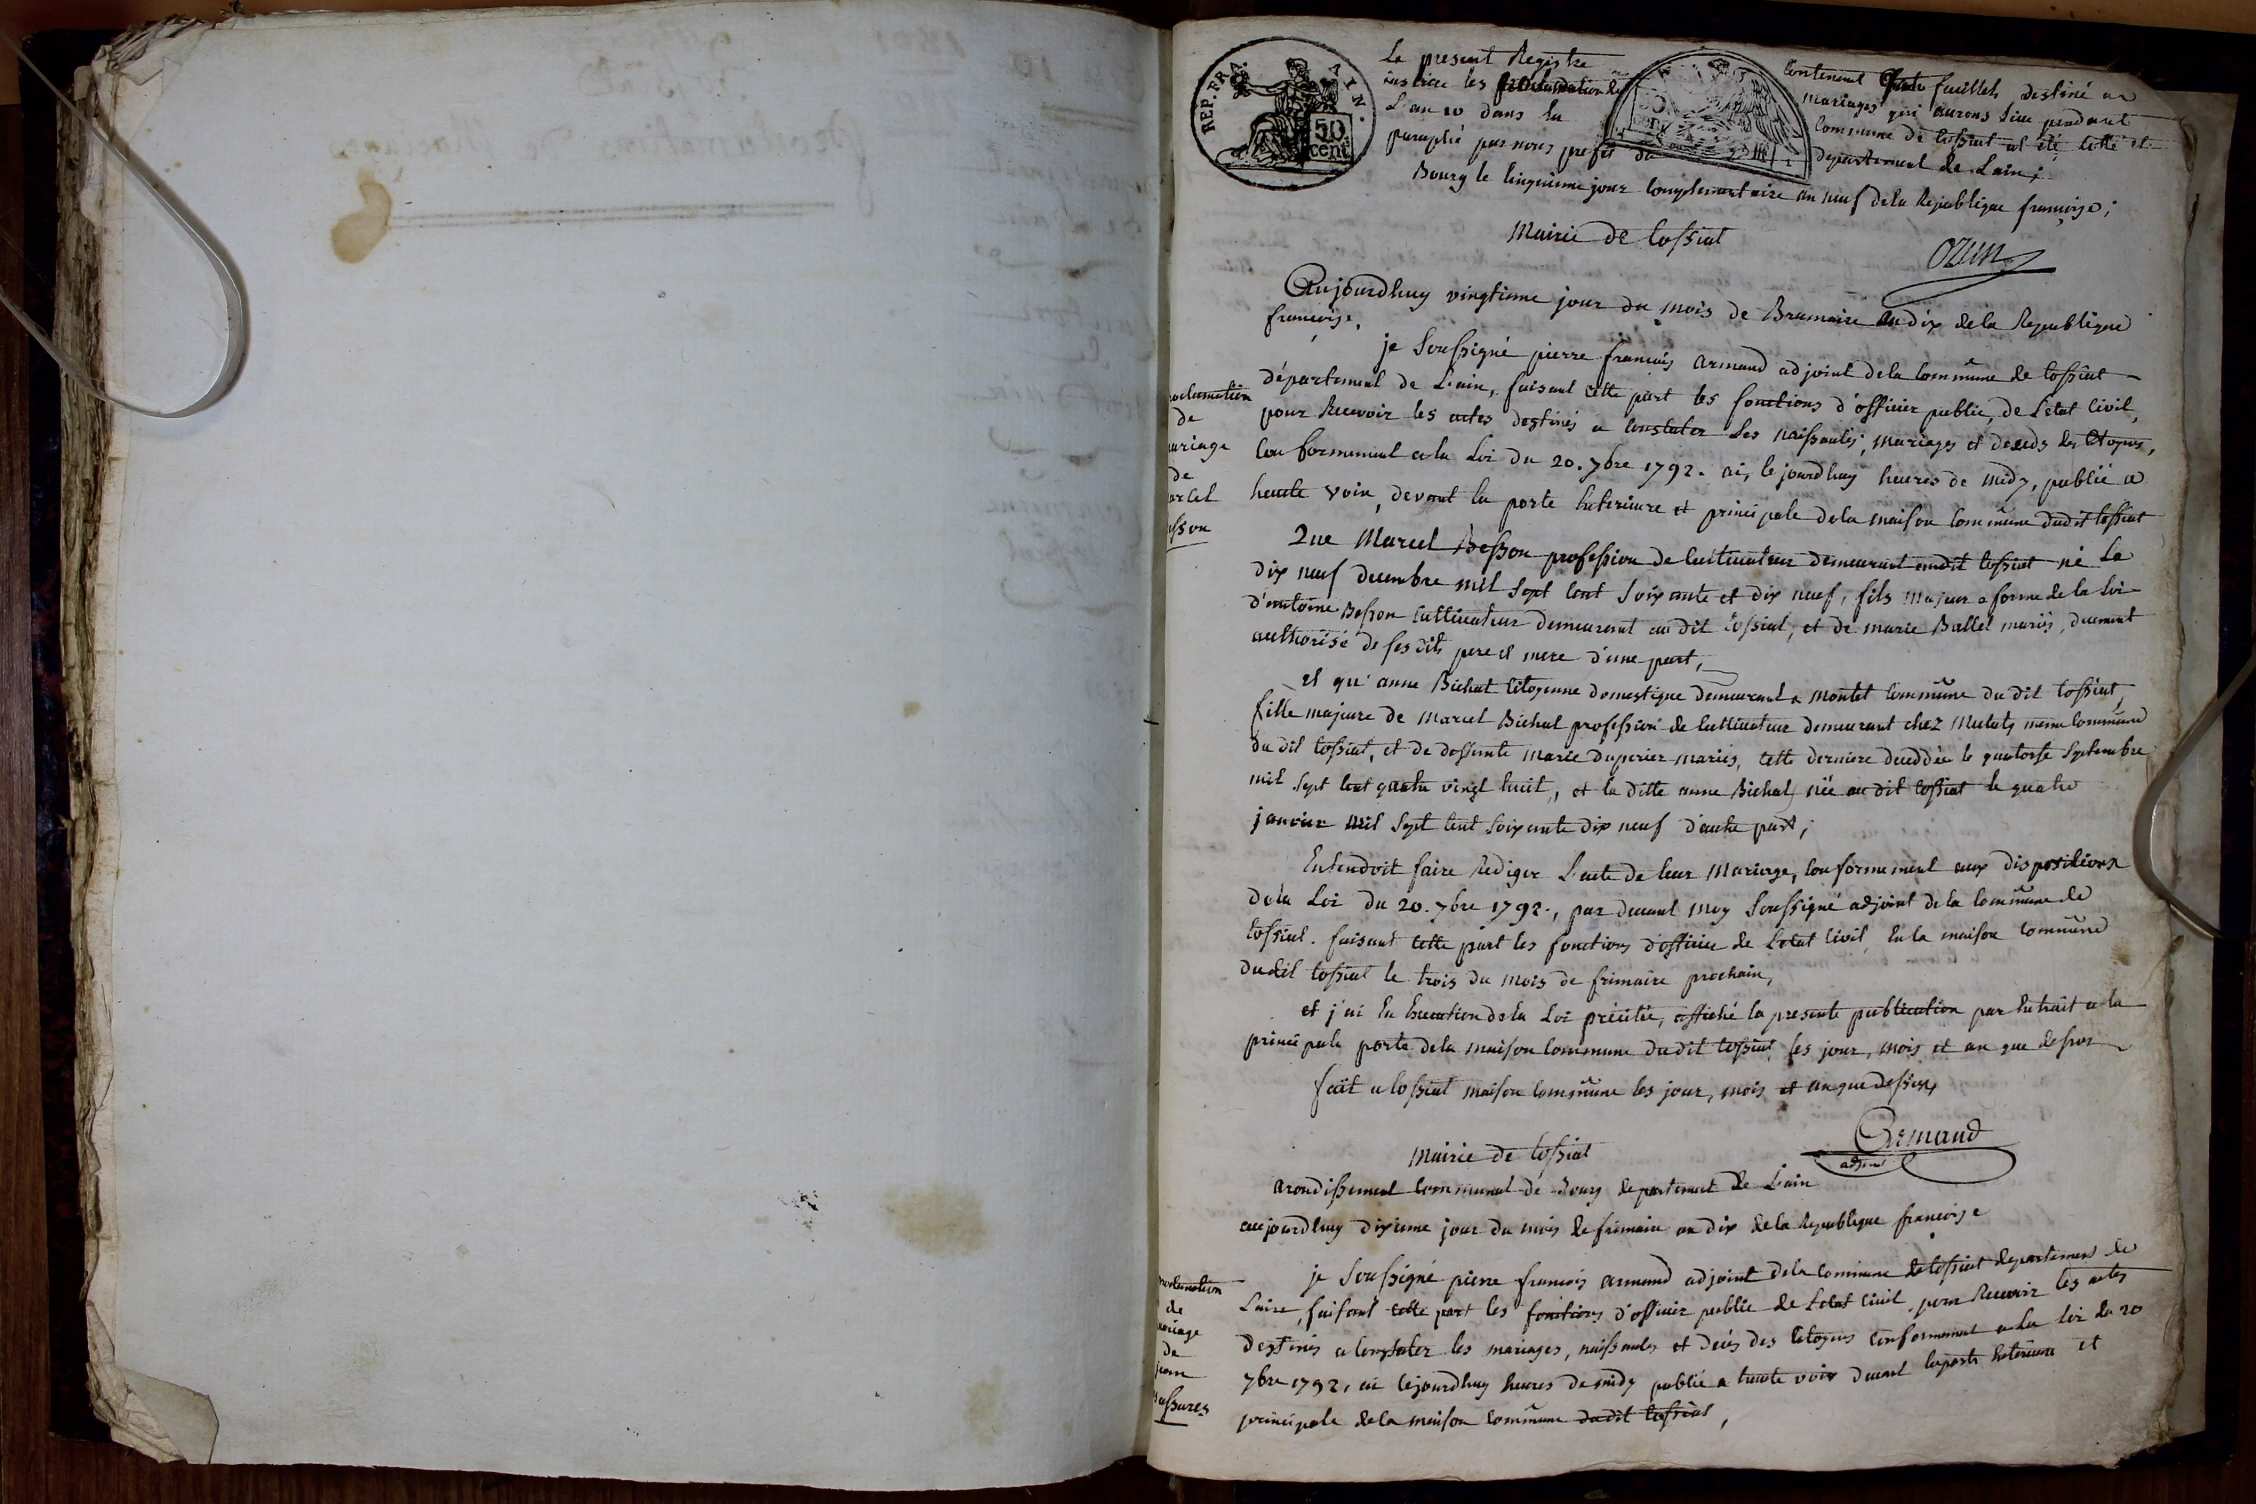 REP. FRA. AIN.
50 cent
Le present Registre
contenant feuillets destiné a
inscrire les proclamation de
mariages qui aurons lieu pendant
L'an 10 dans la
commune de tossiat a été cotté et
paraphé par nous prefet du
departement de L'ain;
Bourg le cinquieme jour complementaire an neuf de la Republique françoise;
Mairie de tossiat
OZUN
Aujourdhuy vingtieme jour du mois de Brumaire an dix de la Republique
françoise,
je Soussigné pierre françois armand adjoint de la commune de tossiat
département de L'ain, faisant cette part les fonctions d'officier public, de Letat Civil,
pour Recevoir les actes destinés a constater les naissances, mariages et deceds des Citoyens,
Conformement a la Loi du 20. 7bre 1792. ai, cejourdhuy heures de midy, publié a
haute voix, devant la porte Exterieure et principale de la maison commune dudit tossiat
proclamation
de
mariage
de
marcel
Besson
Que Marcel Besson profession de Cultivateur demeurant audit tossiat né Le
dix neuf decembre mil sept cent soixante et dix neuf, fils majeur a forme de la Loi
d'antoine Besson Cultivateur demeurant au dit tossiat, et de marie Ballet mariés, duement
authorisé de ses dits pere et mere d'une part,
et qu'anne Bichat Citoyenne domestique demeurant a montet commune du dit tossiat,
fille majeure de Marcel Bichat profession de Cultivateur demeurant chez Mulats meme commune
du dit tossiat, et de deffunte Marie duperier mariés, cette derniere deceddée le quatorse Septembre
mil sept cent quatre vingt huit, et la ditte anne Bichat née au dit tossiat le quatre
janvier mil sept cent soixante dix neuf d'autre part;
Entendoit faire Rediger L'acte de leur Mariage, conformement aux dispositions
de la Loi du 20. 7bre 1792., par devant moy Soussigné adjoint de la commune de
tossiat. faisant cette part les fonctions d'officier de Letat Civil, En la maison commune
dudit tossiat le trois du mois de frimaire prochain,
et j'ai En Execution de la Loi précitée, affiché la presente publication par Extrait a la
principale porte de la maison commune du dit tossiat, les jour, mois et an que dessus
fait a tossiat maison commune les jour, mois et an que dessus,
Armand
adjoint
Mairie de tossiat
arondissement communal de Bourg departement de L'ain
aujourdhuy dixieme jour du mois de frimaire an dix de la Republique françoise
proclamation
de
mariage
de
jean
je Soussigné pierre françois armand adjoint de la commune de tossiat departement de
Lain, faisant cette part les fonctions d'officier public de Letat Civil, pour Recevoir les actes
destinés a constater les mariages, naissances et decès des Citoyens conformement a la Loi du 20
7bre 1792, ai cejourdhuy heures de midy publié a haute voix devant la porte Exterieure et
principale de la maison commune du dit tossiat,